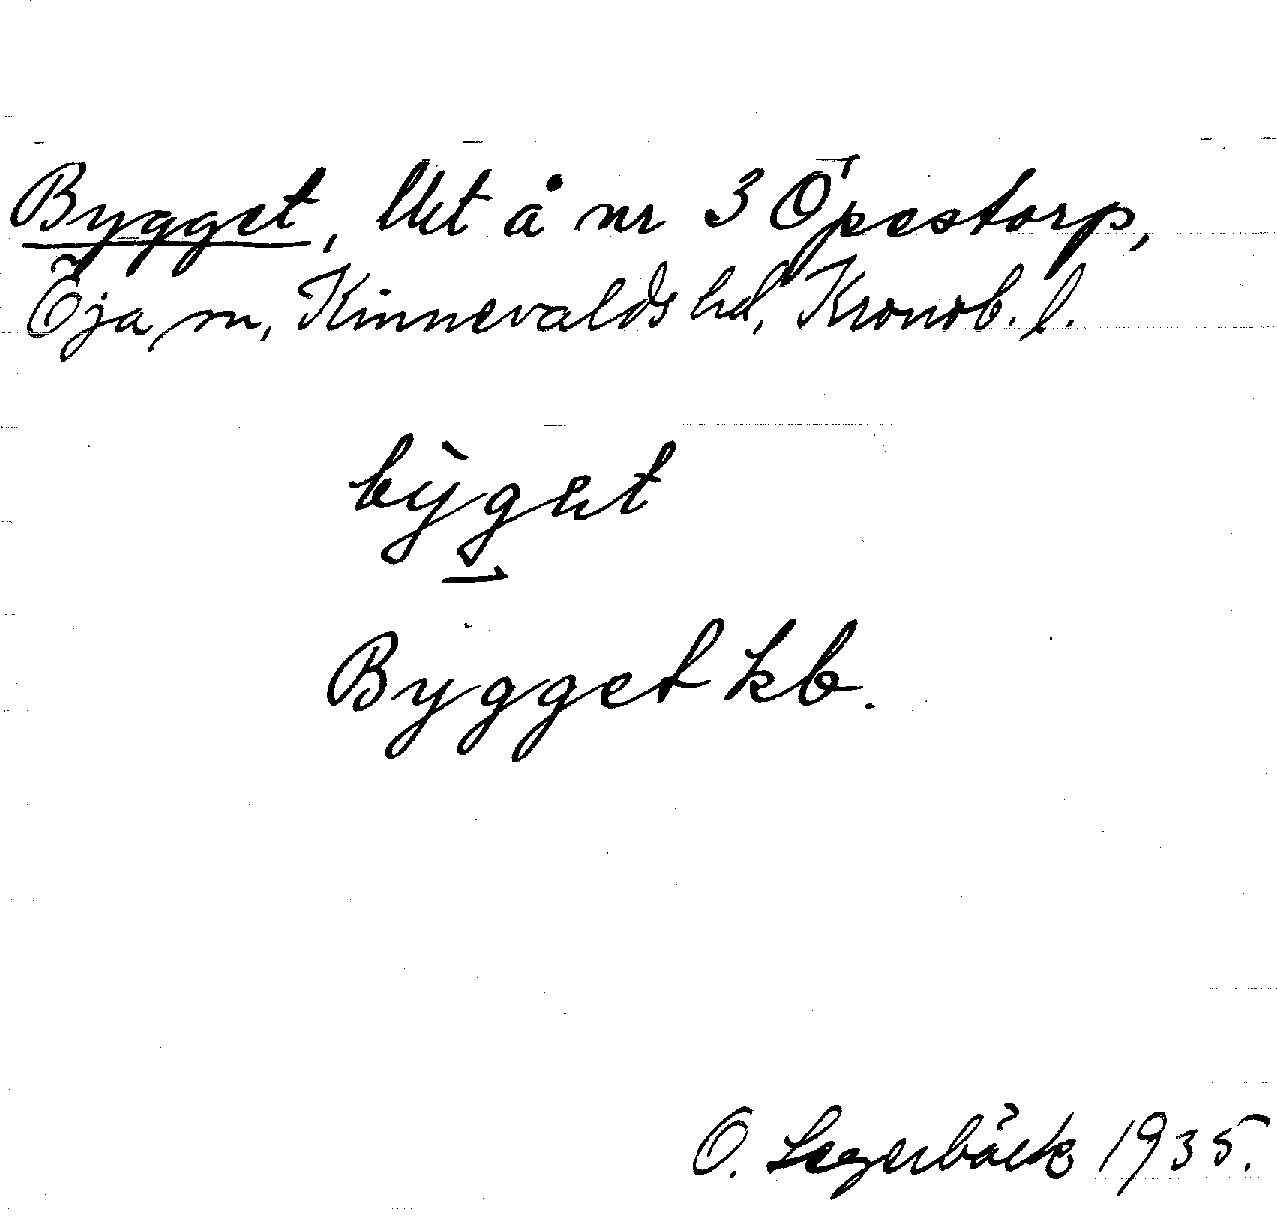 Bygget, lht å nr 3 Öpestorp,
Öja sn, Kinnevalds hd, Kronob. l.
bỳget
Bygget kb.
O. Lagerbäck 1935.